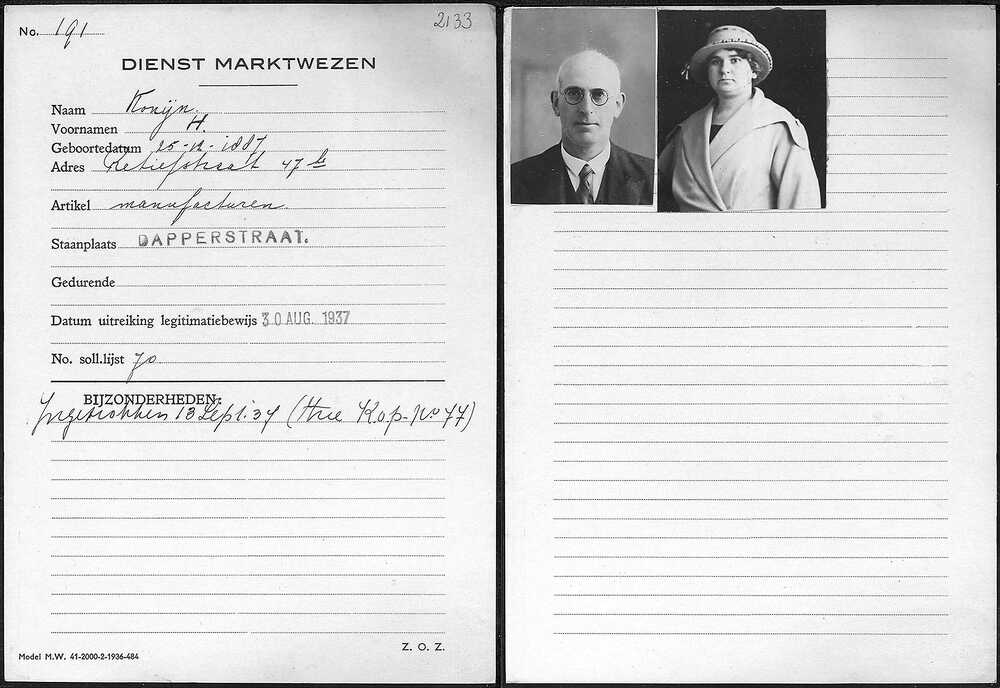 No. 191
2133
DIENST MARKTWEZEN
Naam Konijn.
Voornamen H.
Geboortedatum 25-12-1887
Adres Retiefstraat 47 h
Artikel manufacturen
Staanplaats DAPPERSTRAAT.
Gedurende
Datum uitreiking legitimatiebewijs 30 AUG. 1937
No. soll.lijst 70
BIJZONDERHEDEN:
Ingetrokken 13 Sept. 37 (Hie K.o.p. No 77)
Model M.W. 41-2000-2-1936-484
Z. O. Z.